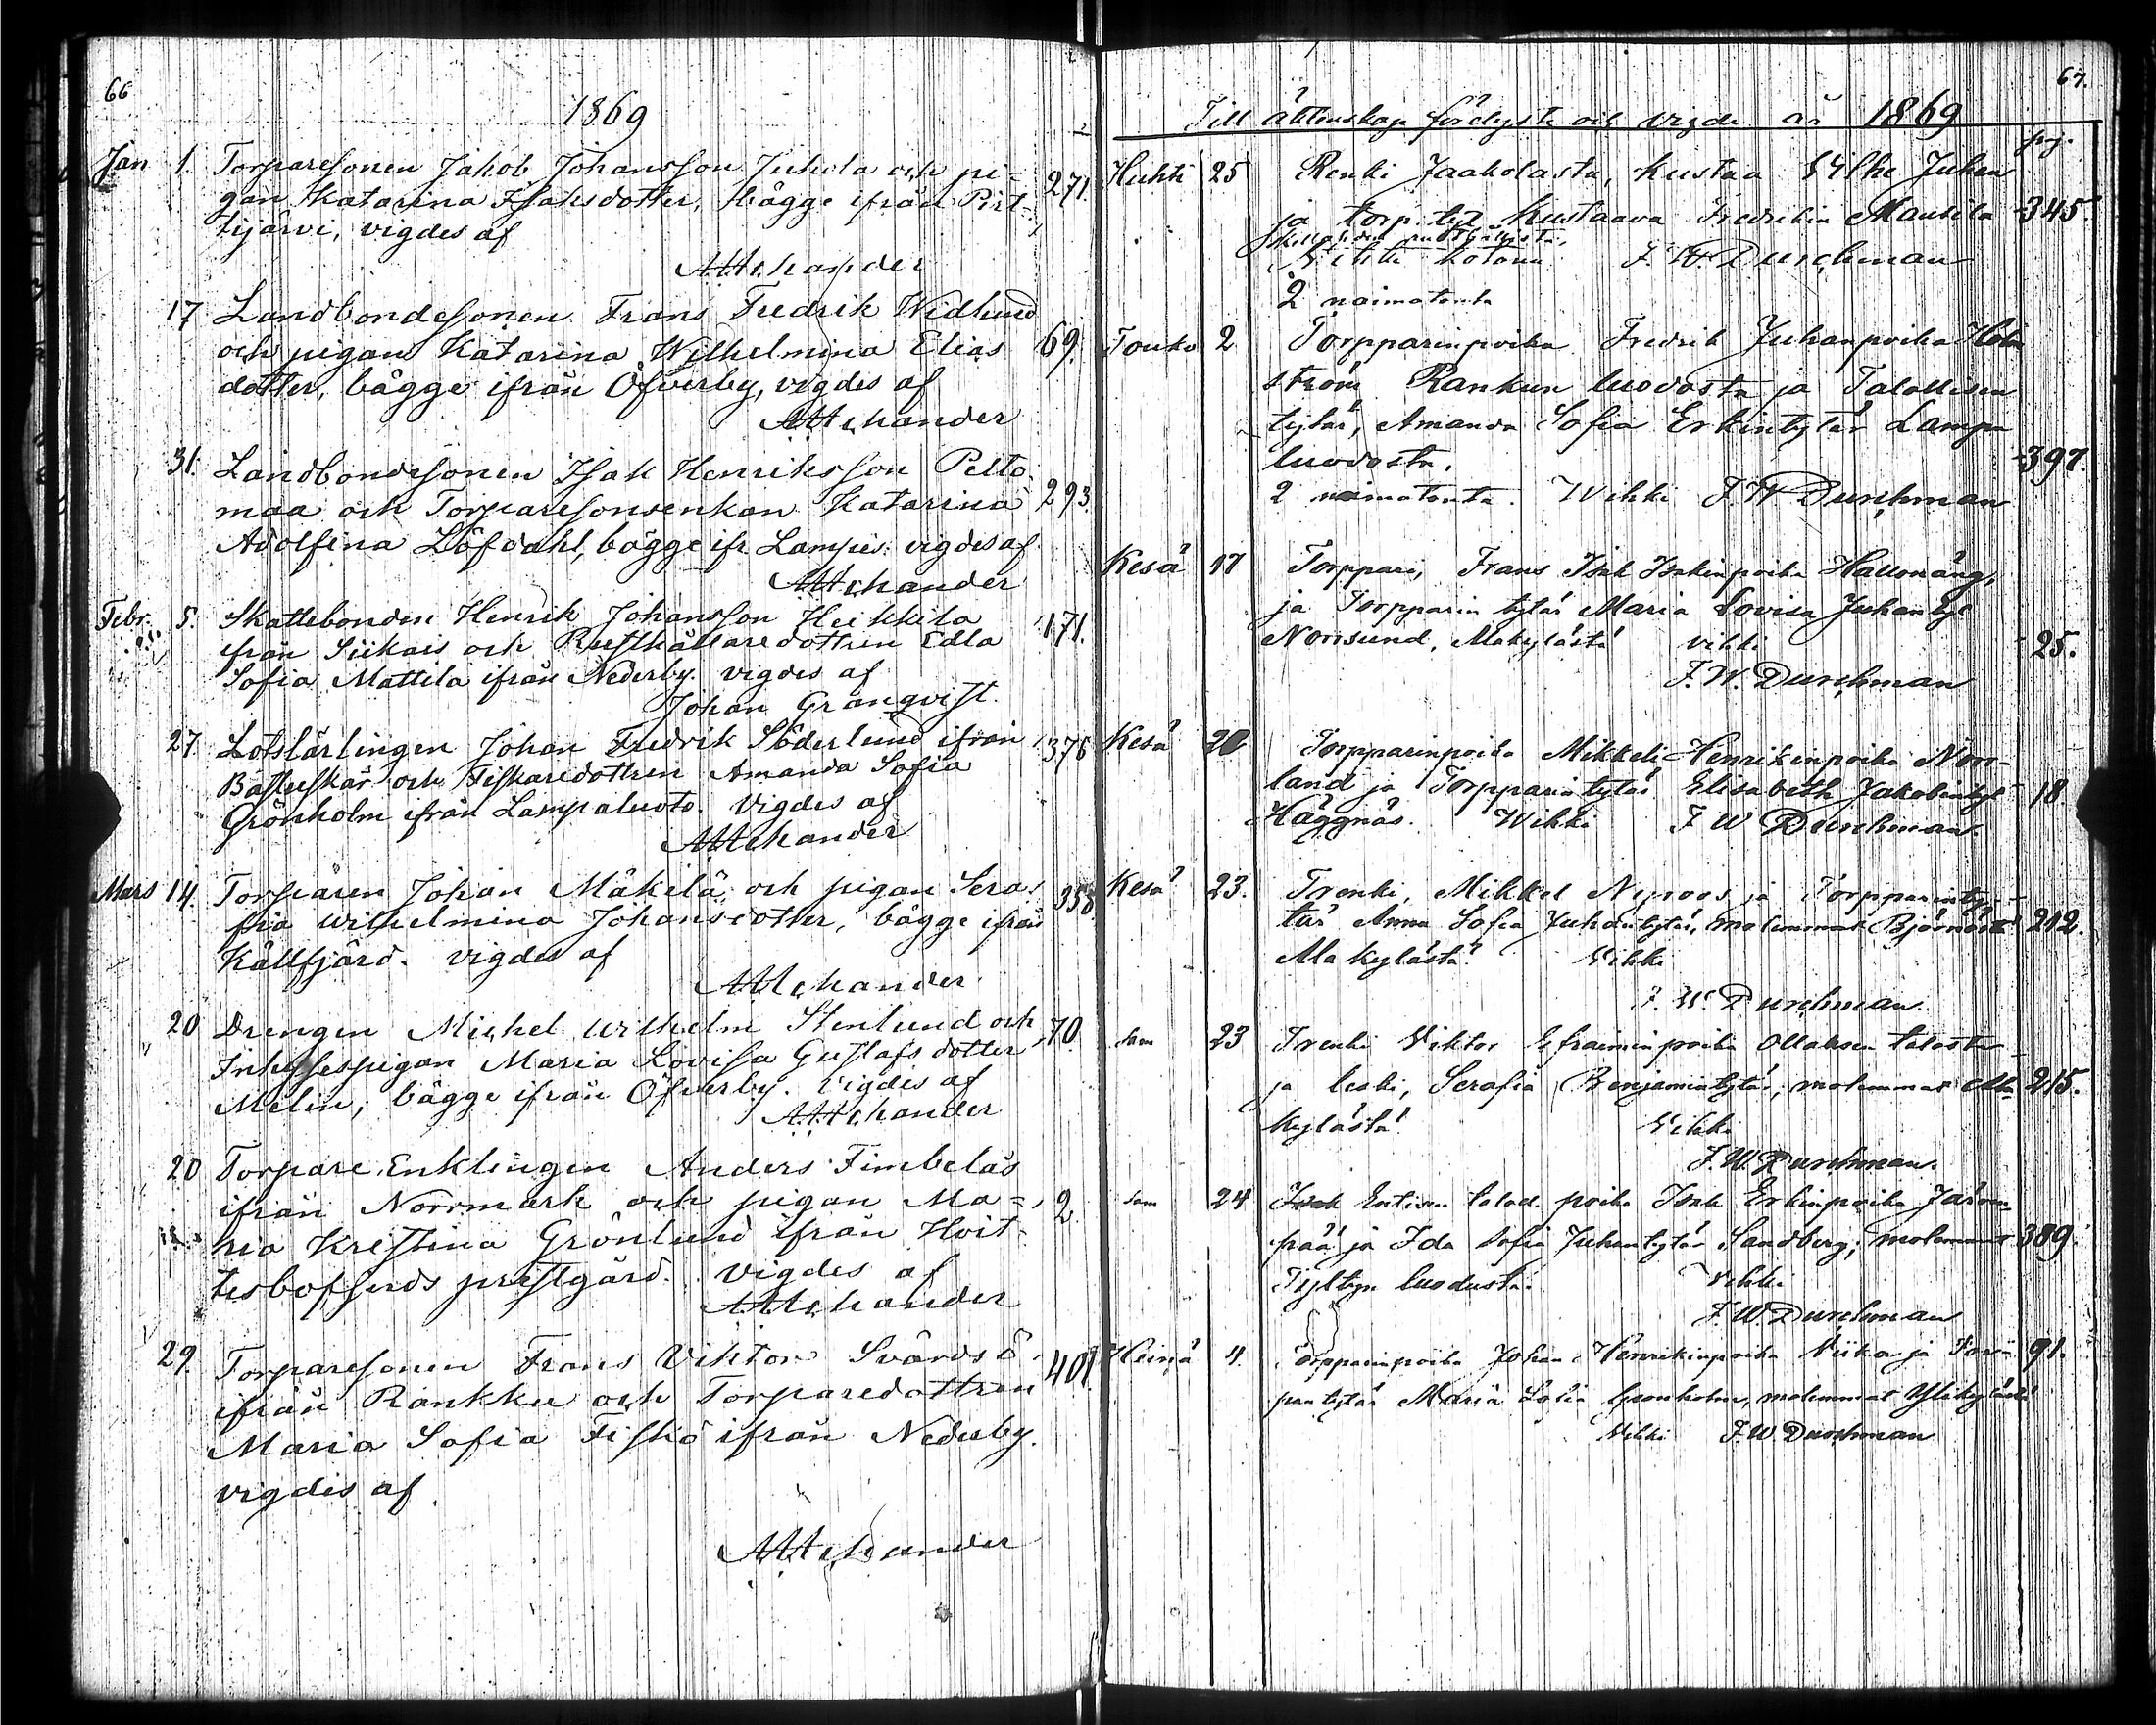 66
1869
Jan 1. Torparesonen Jakob Johansson Juhola och pi- 271
gan Katarina Isaksdotter, bägge ifrån Pirt-
tijärvi, vigdes af
17 Landbondesonen Frans Fredrik Widlund
och pigan Katarina Wilhelmina Elias 69
dotter, bägge ifrån Öfverby, vigdes af
31. Landbondesonen Isak Henriksson Pelto
maa och Torparesonsenkan Katarina 293
Adolfina Löfdahl, bägge ifr Lampis. vigdes af
Febr. 5. Skattebonden Henrik Johansson Heikkilä 171.
från Siikais och Rusthållaredottren Edla
Sofia Mattila ifrån Nederby. vigdes af
Johan Granqvist.
27. Lotslärlingen Johan Fredrik Söderlund ifrån 376
Bastuskär och Fiskaredottren Amanda Sofia
Grönholm ifrån Lampaluoto. Vigdes af
Mars 14. Torparen Johan Mäkelä och pigan Sera 358
fia Wilhelmina Johansdotter, bägge ifrån
Källfjärd. vigdes af
20 Drengen Michel Wilhelm Stenlund och 70
Inhysespigan Maria Lovisa Gustafsdotter
Melin, bägge ifrån Öfverby. Vigdes af
20 Torpare Enklingen Anders Fimbelas
ifrån Norrmark och pigan Ma- 2
ria Kristina Grönlund ifrån Hvit-
tesbofjerds prestgård. Vigdes af
29. Torparesonen Frans Viktor Svärdsö 401
ifrån Rankku och Torparedottren
Maria Sofia Fiskö ifrån Nederby.
vigdes af
67.
Till äktenskap förelyste och vigde år 1869
pag.
Huhti 25 Renki Jaakolasta, Kustaa Vilhe Juhan
ja torp. tyt. Kustaava Fredrikin Mantila 345
Vihki kotona F. W. Durchman
2 naimatonta
Touko 2 Torpparinpoika Fredrik Juhanpoika Holm
ström Rankun luodosta ja Talollisen
tytär, Amanda Sofia Erkintytär Lampa
luodosta. 397.
2 naimatonta. Vihki F. W. Durchman
Kesä 17 Torppari, Frans Isak Isakinpoika Hallonäng,
ja Torpparin tytär Maria Lovisa Juhan tyt
Norrsund, Makylästä vihki 25.
F. W. Durchman
Kesä 20 Torpparinpoika Mikkeli Henrikinpoika Norr-
land ja Torpparintytär Elisabeth Jakobintyt 18
Häggnäs. Vihki F W Durchman.
Kesä 23. Trenki, Mikkel Nyroos ja Torpparinty-
tär Anna Sofia Juhantytär, molemmat Björnäs 212.
Makylästä Vihki
F. W. Durchman.
sam 23 Trenki Viktor Efraiminpoika Ollaksen talosta
ja leski, Serafia Benjamintytär, molemmat Ala 215.
kylästä Vihki
F. W. Durchman.
sam 24 Entisen talod. poika Isak Erkinpoika
pää ja Ida Sofia Juhantytär Sandberg, molemmat 389
Tyltyn luodusta. Vihki
F. W. Durchman
Heinä 4. Torpparinpoika Johan Henrikinpoika Viika ja Torp- 91.
pan tytär Maria Sofia Grönholm, molemmat Ylikylästä
Vihki F. W. Durchman